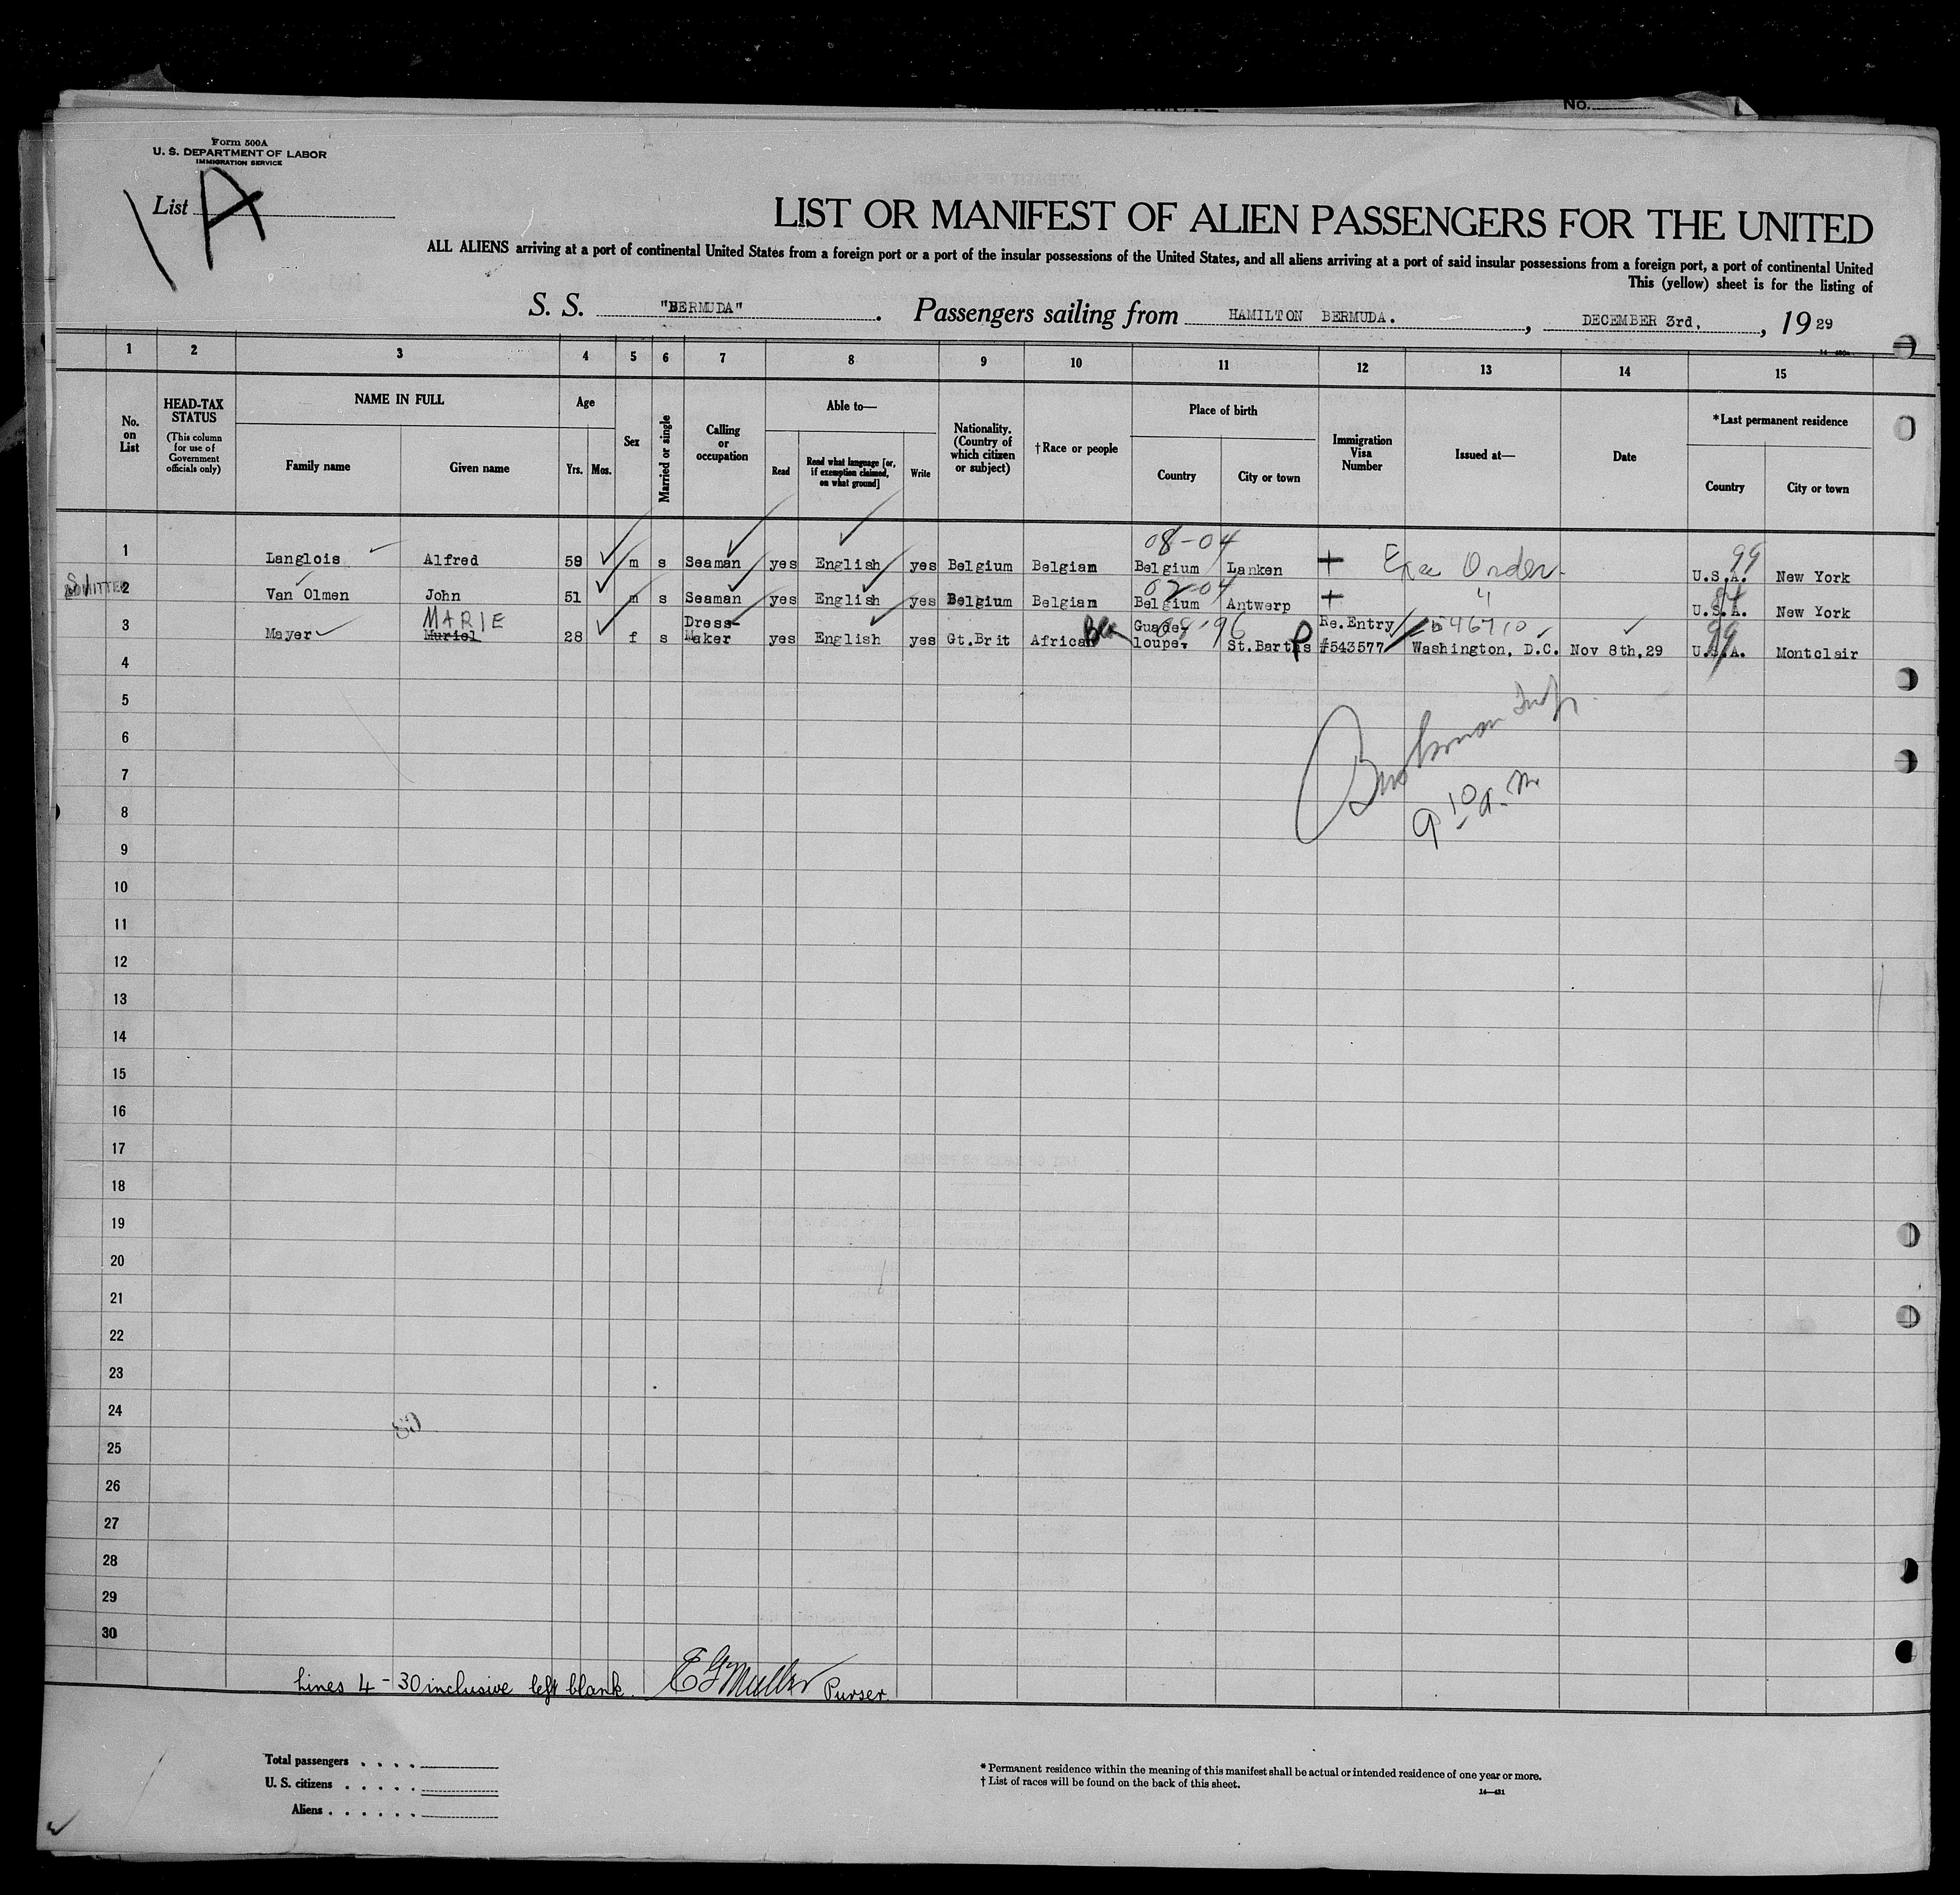 No.
Form 500A
U. S. DEPARTMENT OF LABOR
IMMIGRATION SERVICE
List 1A
LIST OR MANIFEST OF ALIEN PASSENGERS FOR THE UNITED
ALL ALIENS arriving at a port of continental United States from a foreign port or a port of the insular possessions of the United States, and all aliens arriving at a port of said insular possessions from a foreign port, a port of continental United
This (yellow) sheet is for the listing of
S. S. "BERMUDA". Passengers sailing from HAMILTON BERMUDA., DECEMBER 3rd, , 19 29
1 2 3 4 5 6 7 8 9 10 11 12 13 14 15
No. on List
HEAD-TAX STATUS
(This column for use of Government officials only)
NAME IN FULL
Family name
Given name
Age
Yrs. Mos.
Sex
Married or single
Calling or occupation
Able to—
Read
Read what language [or, if exemption claimed, on what ground]
Write
Nationality. (Country of which citizen or subject)
†Race or people
Place of birth
Country
City or town
Immigration Visa Number
Issued at—
Date
*Last permanent residence
Country
City or town
08-04 99
1 Langlois Alfred 58 m s Seaman yes English yes Belgium Belgian Belgium Lanken + Exe Order. U.S.A. New York
02-04
ADMITTED
2 Van Olmen John 51 m s Seaman yes English yes Belgium Belgian Belgium Antwerp + " U.S.A. New York
MARIE
3 Mayer Muriel 28 f s Dress Maker yes English yes Gt.Brit African Guade-loupe. St.Barths Re.Entry #543577 Washington, D.C. Nov 8th,29 U.S.A. Montclair
4
5
6
7
8
9
10
11
12
13
14
15
16
17
18
19
20
21
22
23
24
25
26
27
28
29
30
9 10 a.m
Lines 4 - 30 inclusive left blank. E G Muller Purser.
Total passengers . . . .
U. S. citizens . . . . .
Aliens . . . . . .
* Permanent residence within the meaning of this manifest shall be actual or intended residence of one year or more.
† List of races will be found on the back of this sheet.
14—431